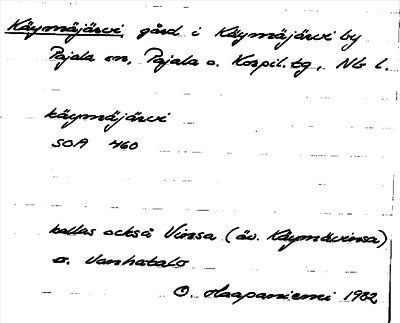 Käymäjärvi gård i Käymäjärvi by
Pajala sn, Pajala o. Korpil. tg, Nb l.
käymäjärvi
SOA 460
kallas också Vinsa (äv. Käymävinsa)
o. Vanhatalo
O. Haapaniemi 1982